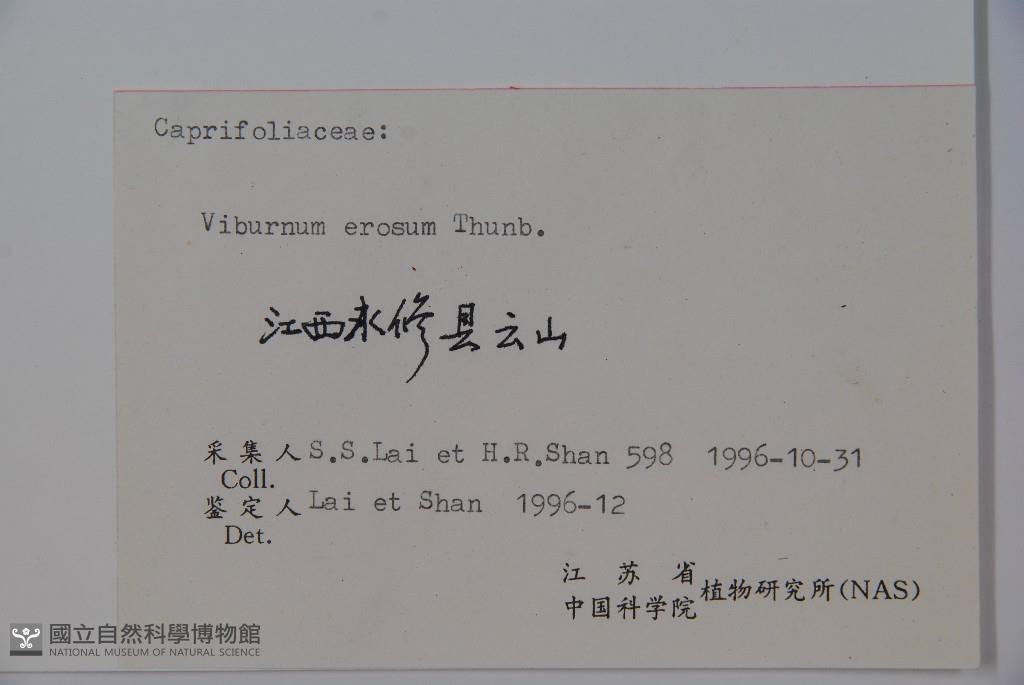 Caprifoliaceae:
Viburnum erosum Thunb.
江西永修县云山
采集人 S.S.Lai et H.R.Shan 598 1996-10-31
Coll.
鉴定人 Lai et Shan 1996-12
Det.
江苏省
中国科学院 植物研究所(NAS)
國立自然科學博物館
NATIONAL MUSEUM OF NATURAL SCIENCE